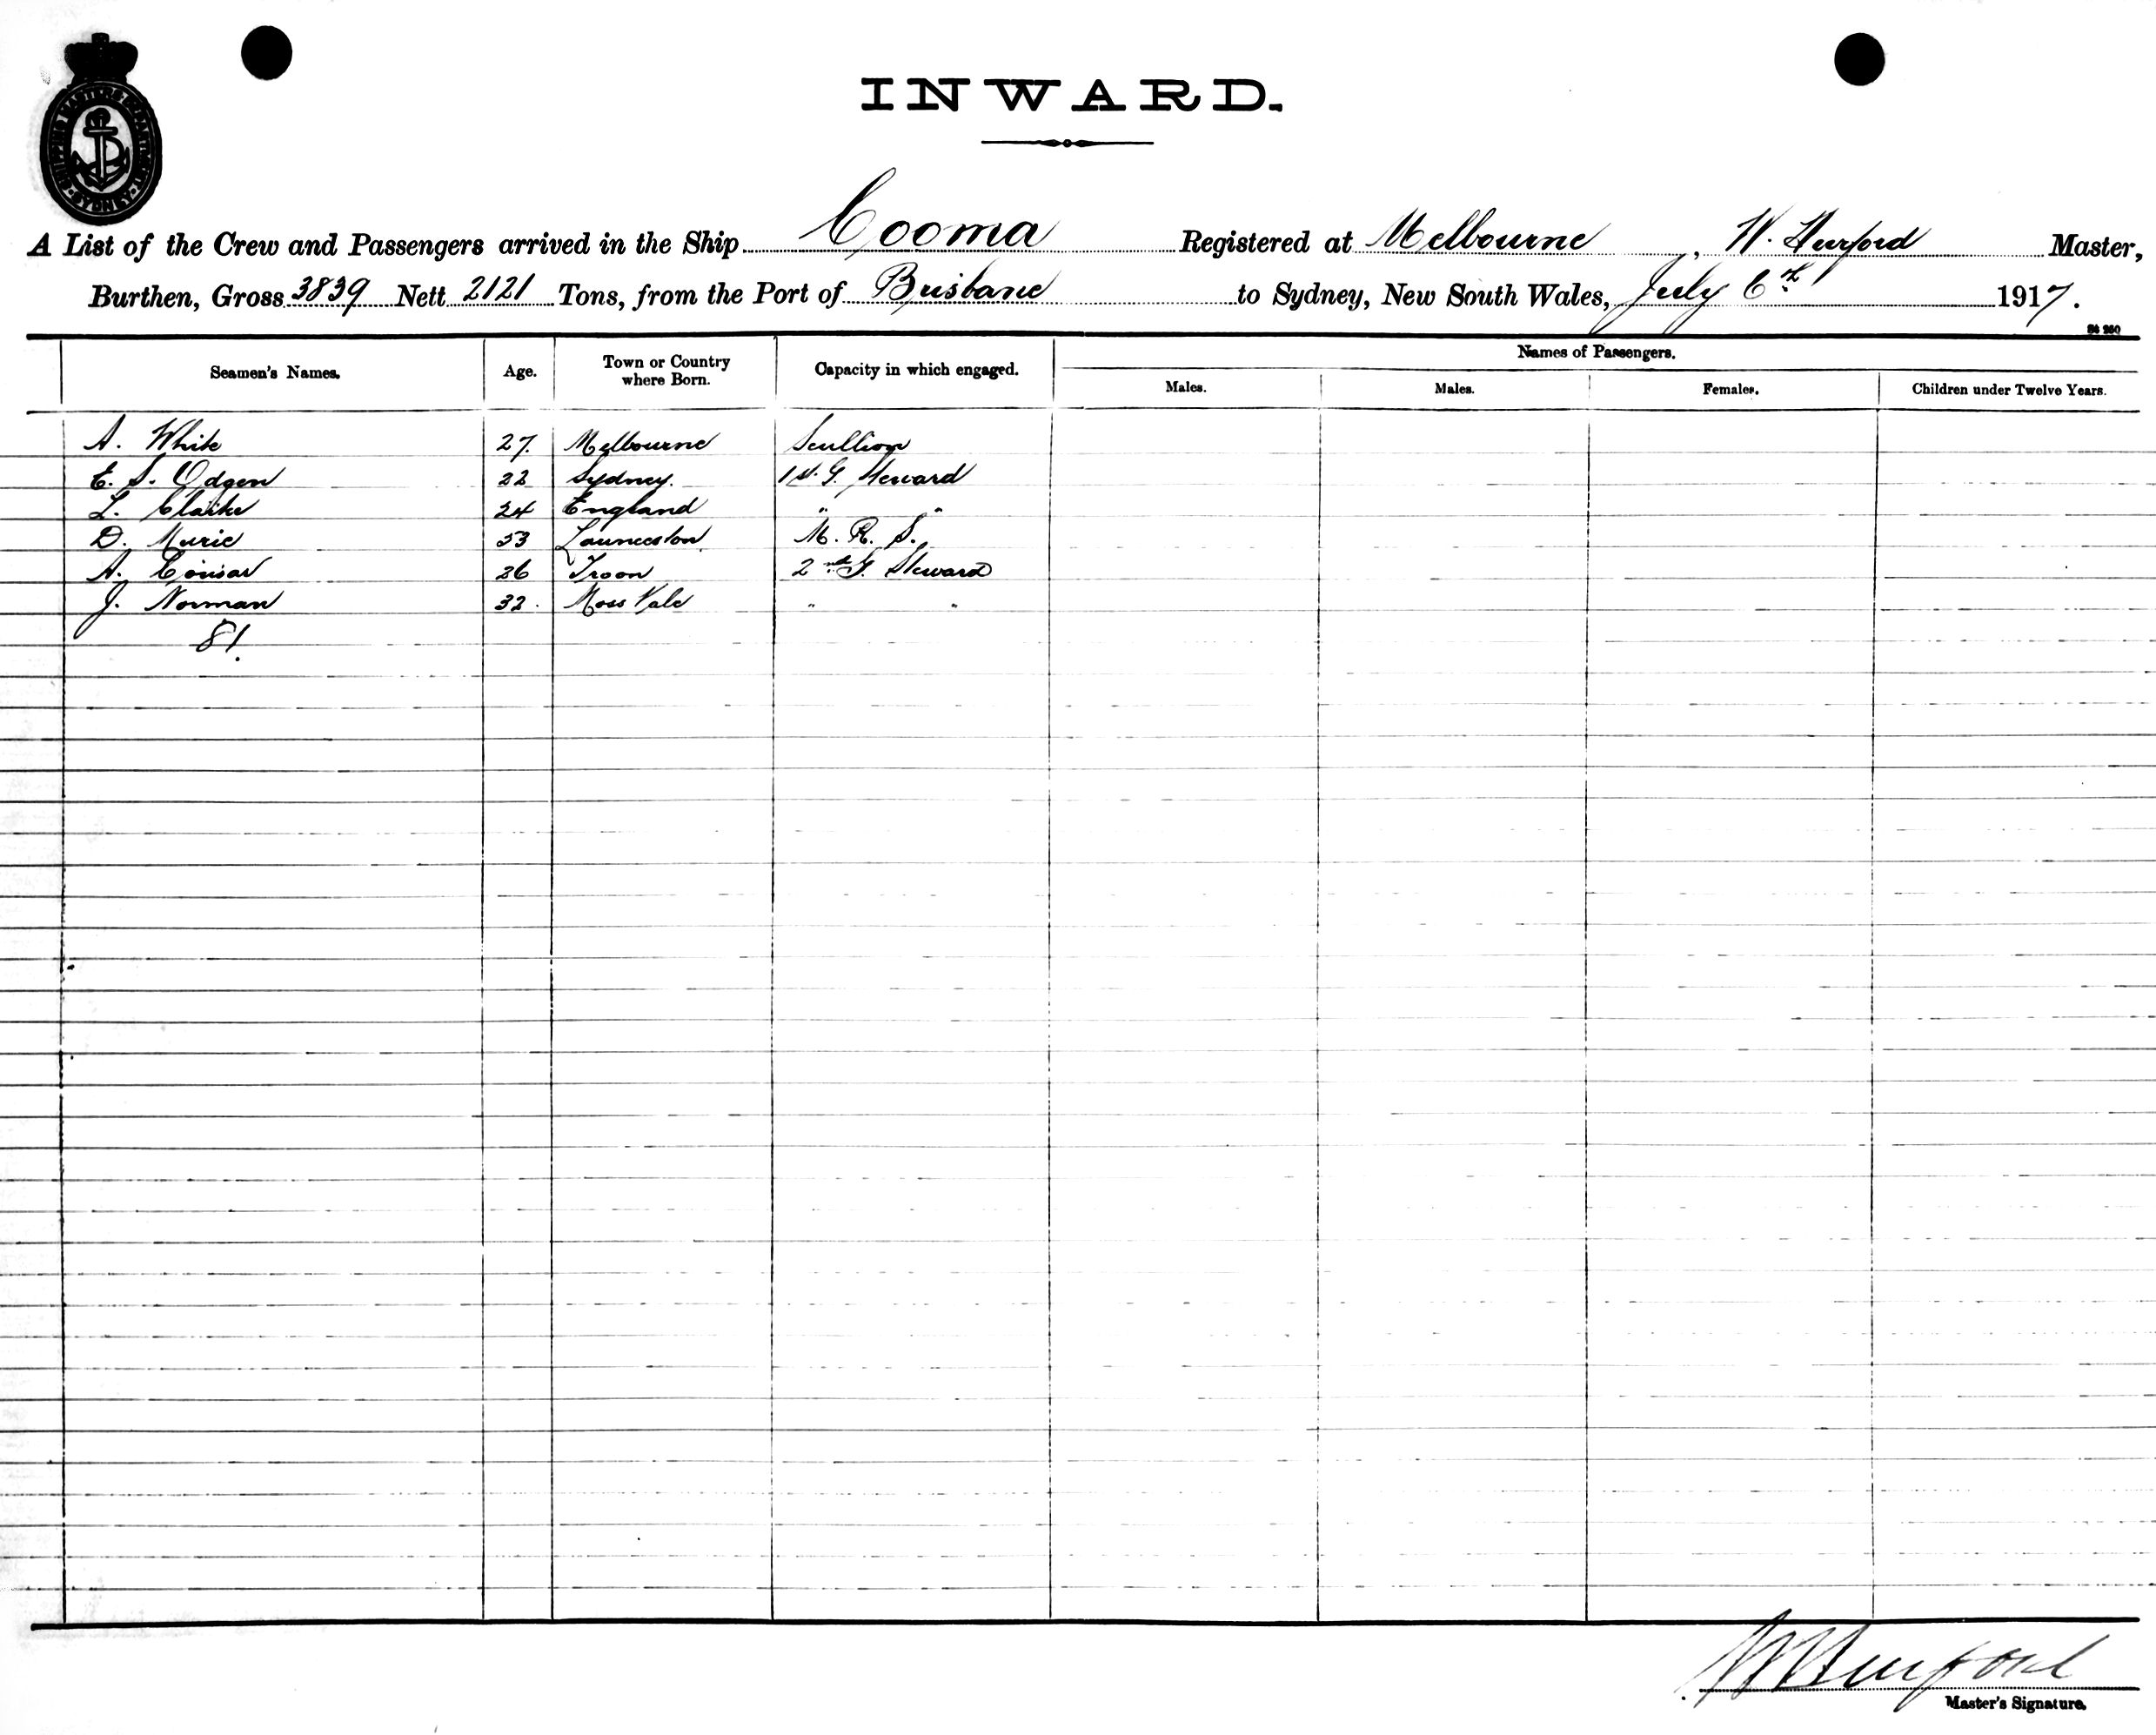 SHIPPING MASTER'S DEPARTMENT SYDNEY
INWARD.
A List of the Crew and Passengers arrived in the Ship Cooma Registered at Melbourne, W. Hurford Master,
Burthen, Gross 3839 Nett 2121 Tons, from the Port of Brisbane to Sydney, New South Wales, July 6th 1917.
Names of Passengers.
Seamen's Names. Age. Town or Country where Born. Capacity in which engaged. Males. Males. Females. Children under Twelve Years.
A. White 27. Melbourne Scullion
E. S. Odgen 22 Sydney. 1st. G. Steward
L. Clarke 24 England " "
D. Murie 53 Launceston M. R. S.
A. 26 Troon 2nd G. Steward
J. Norman 32. Moss Vale " "
81.
W Hurford
Master's Signature.